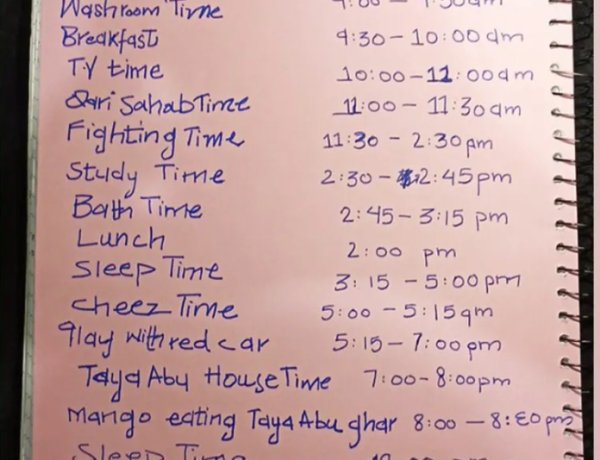 Washroom Time
Breakfast 9:30 - 10:00 am
TV time 10:00 - 11:00 am
Qari Sahab Time 11:00 - 11:30 am
Fighting Time 11:30 - 2:30 pm
Study Time 2:30 - 2:45 pm
Bath Time 2:45 - 3:15 pm
Lunch 2:00 pm
Sleep Time 3:15 - 5:00 pm
Cheez Time 5:00 - 5:15 am
Play with red car 5:15 - 7:00 pm
Taya Abu House Time 7:00 - 8:00 pm
Mango eating Taya Abu ghar 8:00 - 8:30 pm
Sleep Time